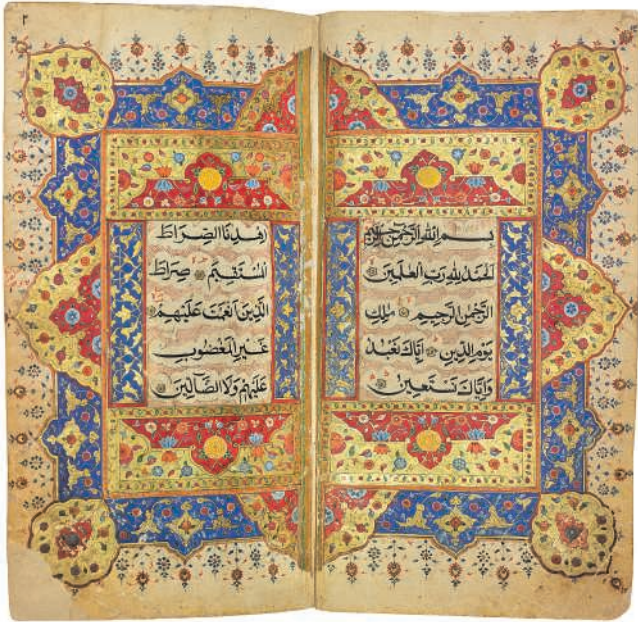 بسم الله الرحمن الرحيم
الحمد لله رب العلمين
الرحمن الرحيم ملك
يوم الدين إياك نعبد
وإياك نستعين
٢
اهدنا الصراط
المستقيم صراط
الذين أنعمت عليهم
غير المغضوب
عليهم ولا الضالين